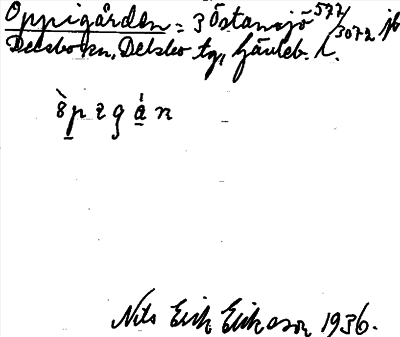 Oppigården = 3 Östansjö 577/3072 jb
Delsbo sn, Delsbo tg, Gävleb. l.
ö̀pegá̱n
Nils Erik Eriksson 1936.